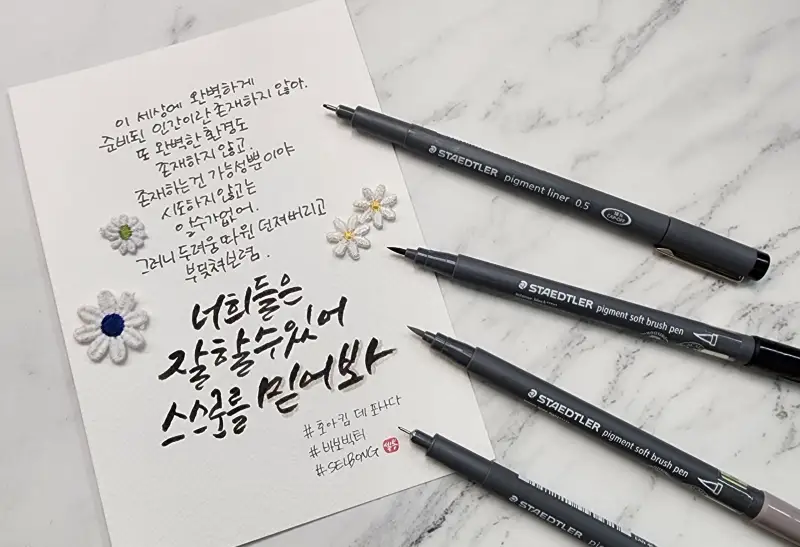 이 세상에 완벽하게
준비된 인간이란 존재하지 않아.
또 완벽한 환경도
존재하지 않고.
존재하는건 가능성뿐이야
시도하지 않고는
알수가 없어.
그러니 두려움 따윈 던져버리고
부딪쳐보렴.
너희들은
잘할수있어
스스로를 믿어봐
#호아킴 데 포사다
#바보빅터
#SELBONG
STAEDTLER pigment liner 0.5
CAP-OFF
STAEDTLER pigment soft brush pen
STAEDTLER pigment soft brush pen
STAEDTLER